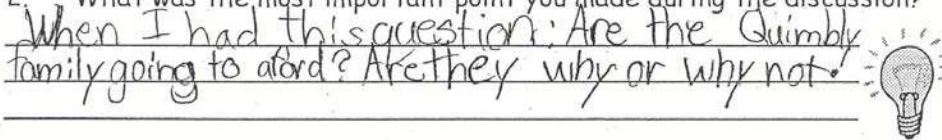 2. What was the most important point you made during the discussion?
When I had this question: Are the Quimbly
family going to aford? Are they why or why not?